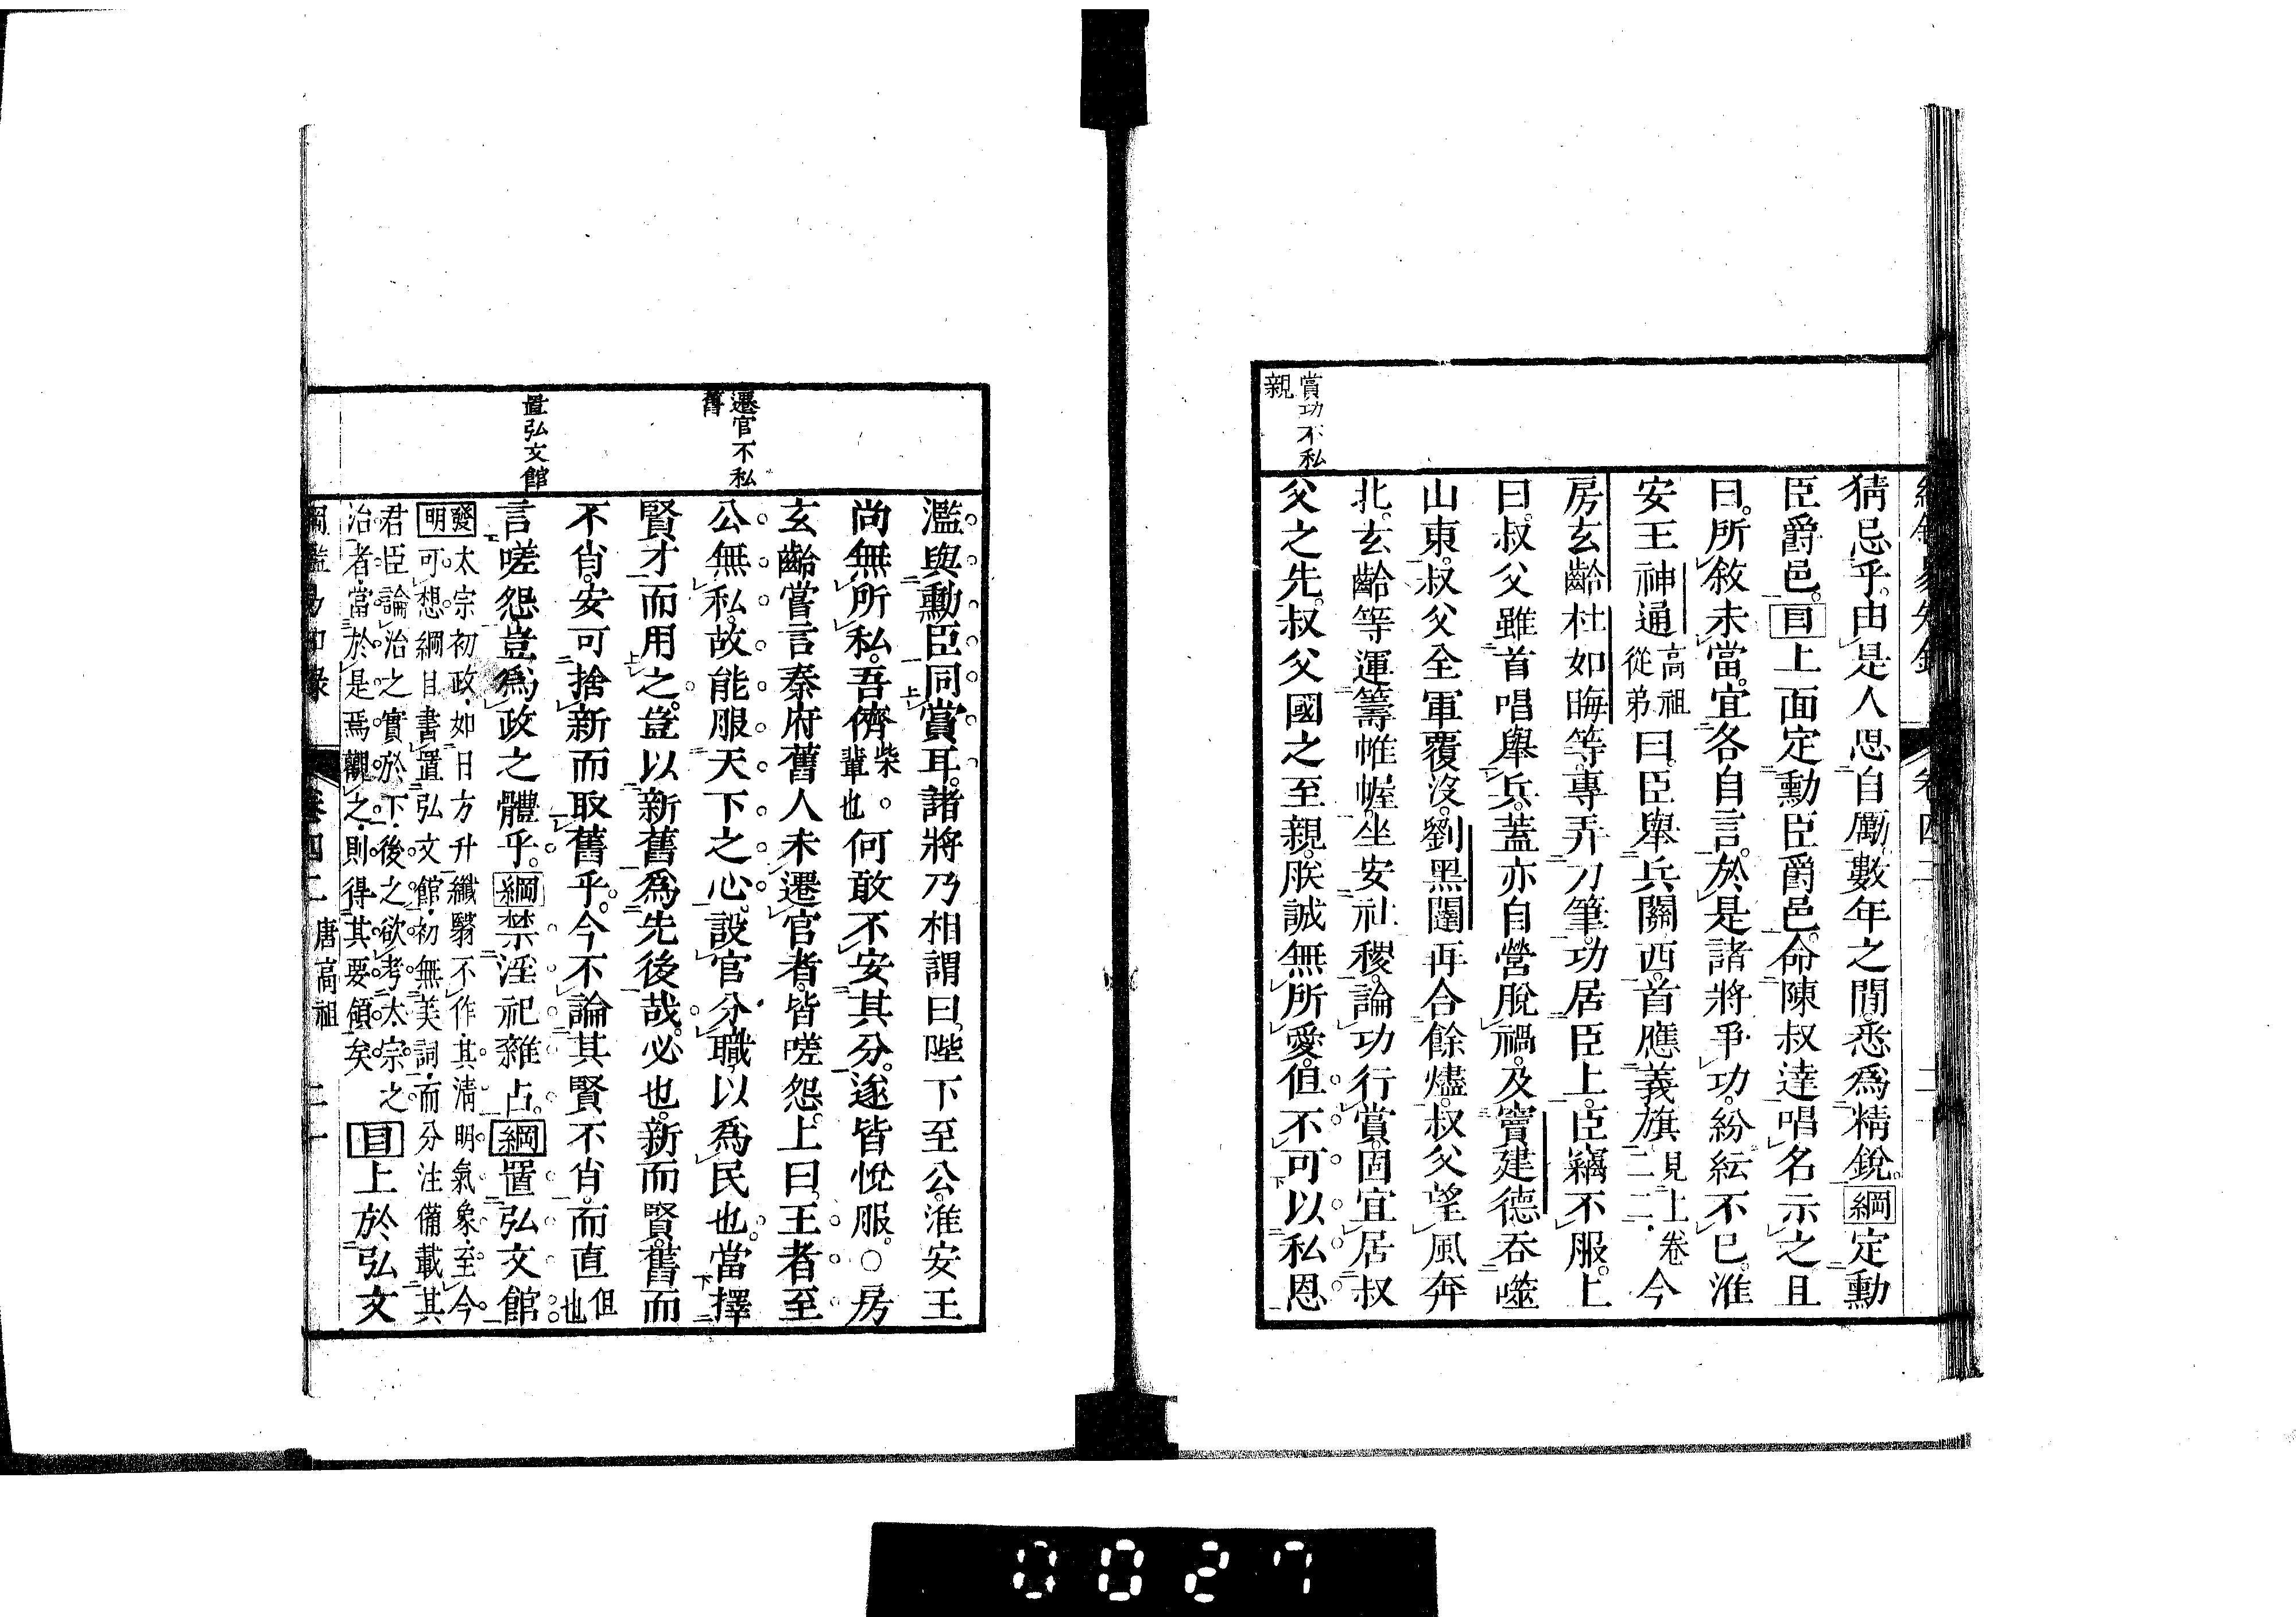 賞功不私
親
猜忌乎。由是人思自勵。數年之間。悉爲精銳。綱定勳
臣爵邑。目上面定勳臣爵邑。命陳叔達唱名示之。且
曰。所敘未當。宜各自言。於是諸將爭功。紛紜不已。淮
安王神通高祖從弟曰。臣舉兵關西。首應義旗見上卷二二。今
房玄齡杜如晦等。專弄刀筆。功居臣上。臣竊不服。上
曰。叔父雖首唱舉兵。蓋亦自營脫禍。及竇建德吞噬
山東。叔父全軍覆沒。劉黑闥再合餘燼。叔父望風奔
北。玄齡等運籌帷幄。坐安社稷。論功行賞。固宜居叔
父之先。叔父國之至親。朕誠無所愛。但不可以私恩
遷官不私
舊
置弘文館
濫與勳臣同賞耳。諸將乃相謂曰。陛下至公。淮安王
尚無所私。吾儕柴。輩也。何敢不安其分。遂皆悅服。○房
玄齡嘗言秦府舊人未遷官者。皆嗟怨。上曰。王者至
公無私。故能服天下之心。設官分職。以爲民也。當擇
賢才而用之。豈以新舊爲先後哉。必也。新而賢。舊而
不肖。安可捨新而取舊乎。今不論其賢不肖。而直但也
言嗟怨。豈爲政之體乎。綱禁淫祀雜占。綱置弘文館。
發明太宗初政。如日方升。纖翳不作。其清明氣象。至今
可想。綱目書置弘文館。初無美詞。而分注備載其
君臣論治之實於下。後之欲考太宗之
治者。當於是焉觀之。則得其要領矣。目上於弘文
綱鑑易知錄 卷四二 唐高祖 二十